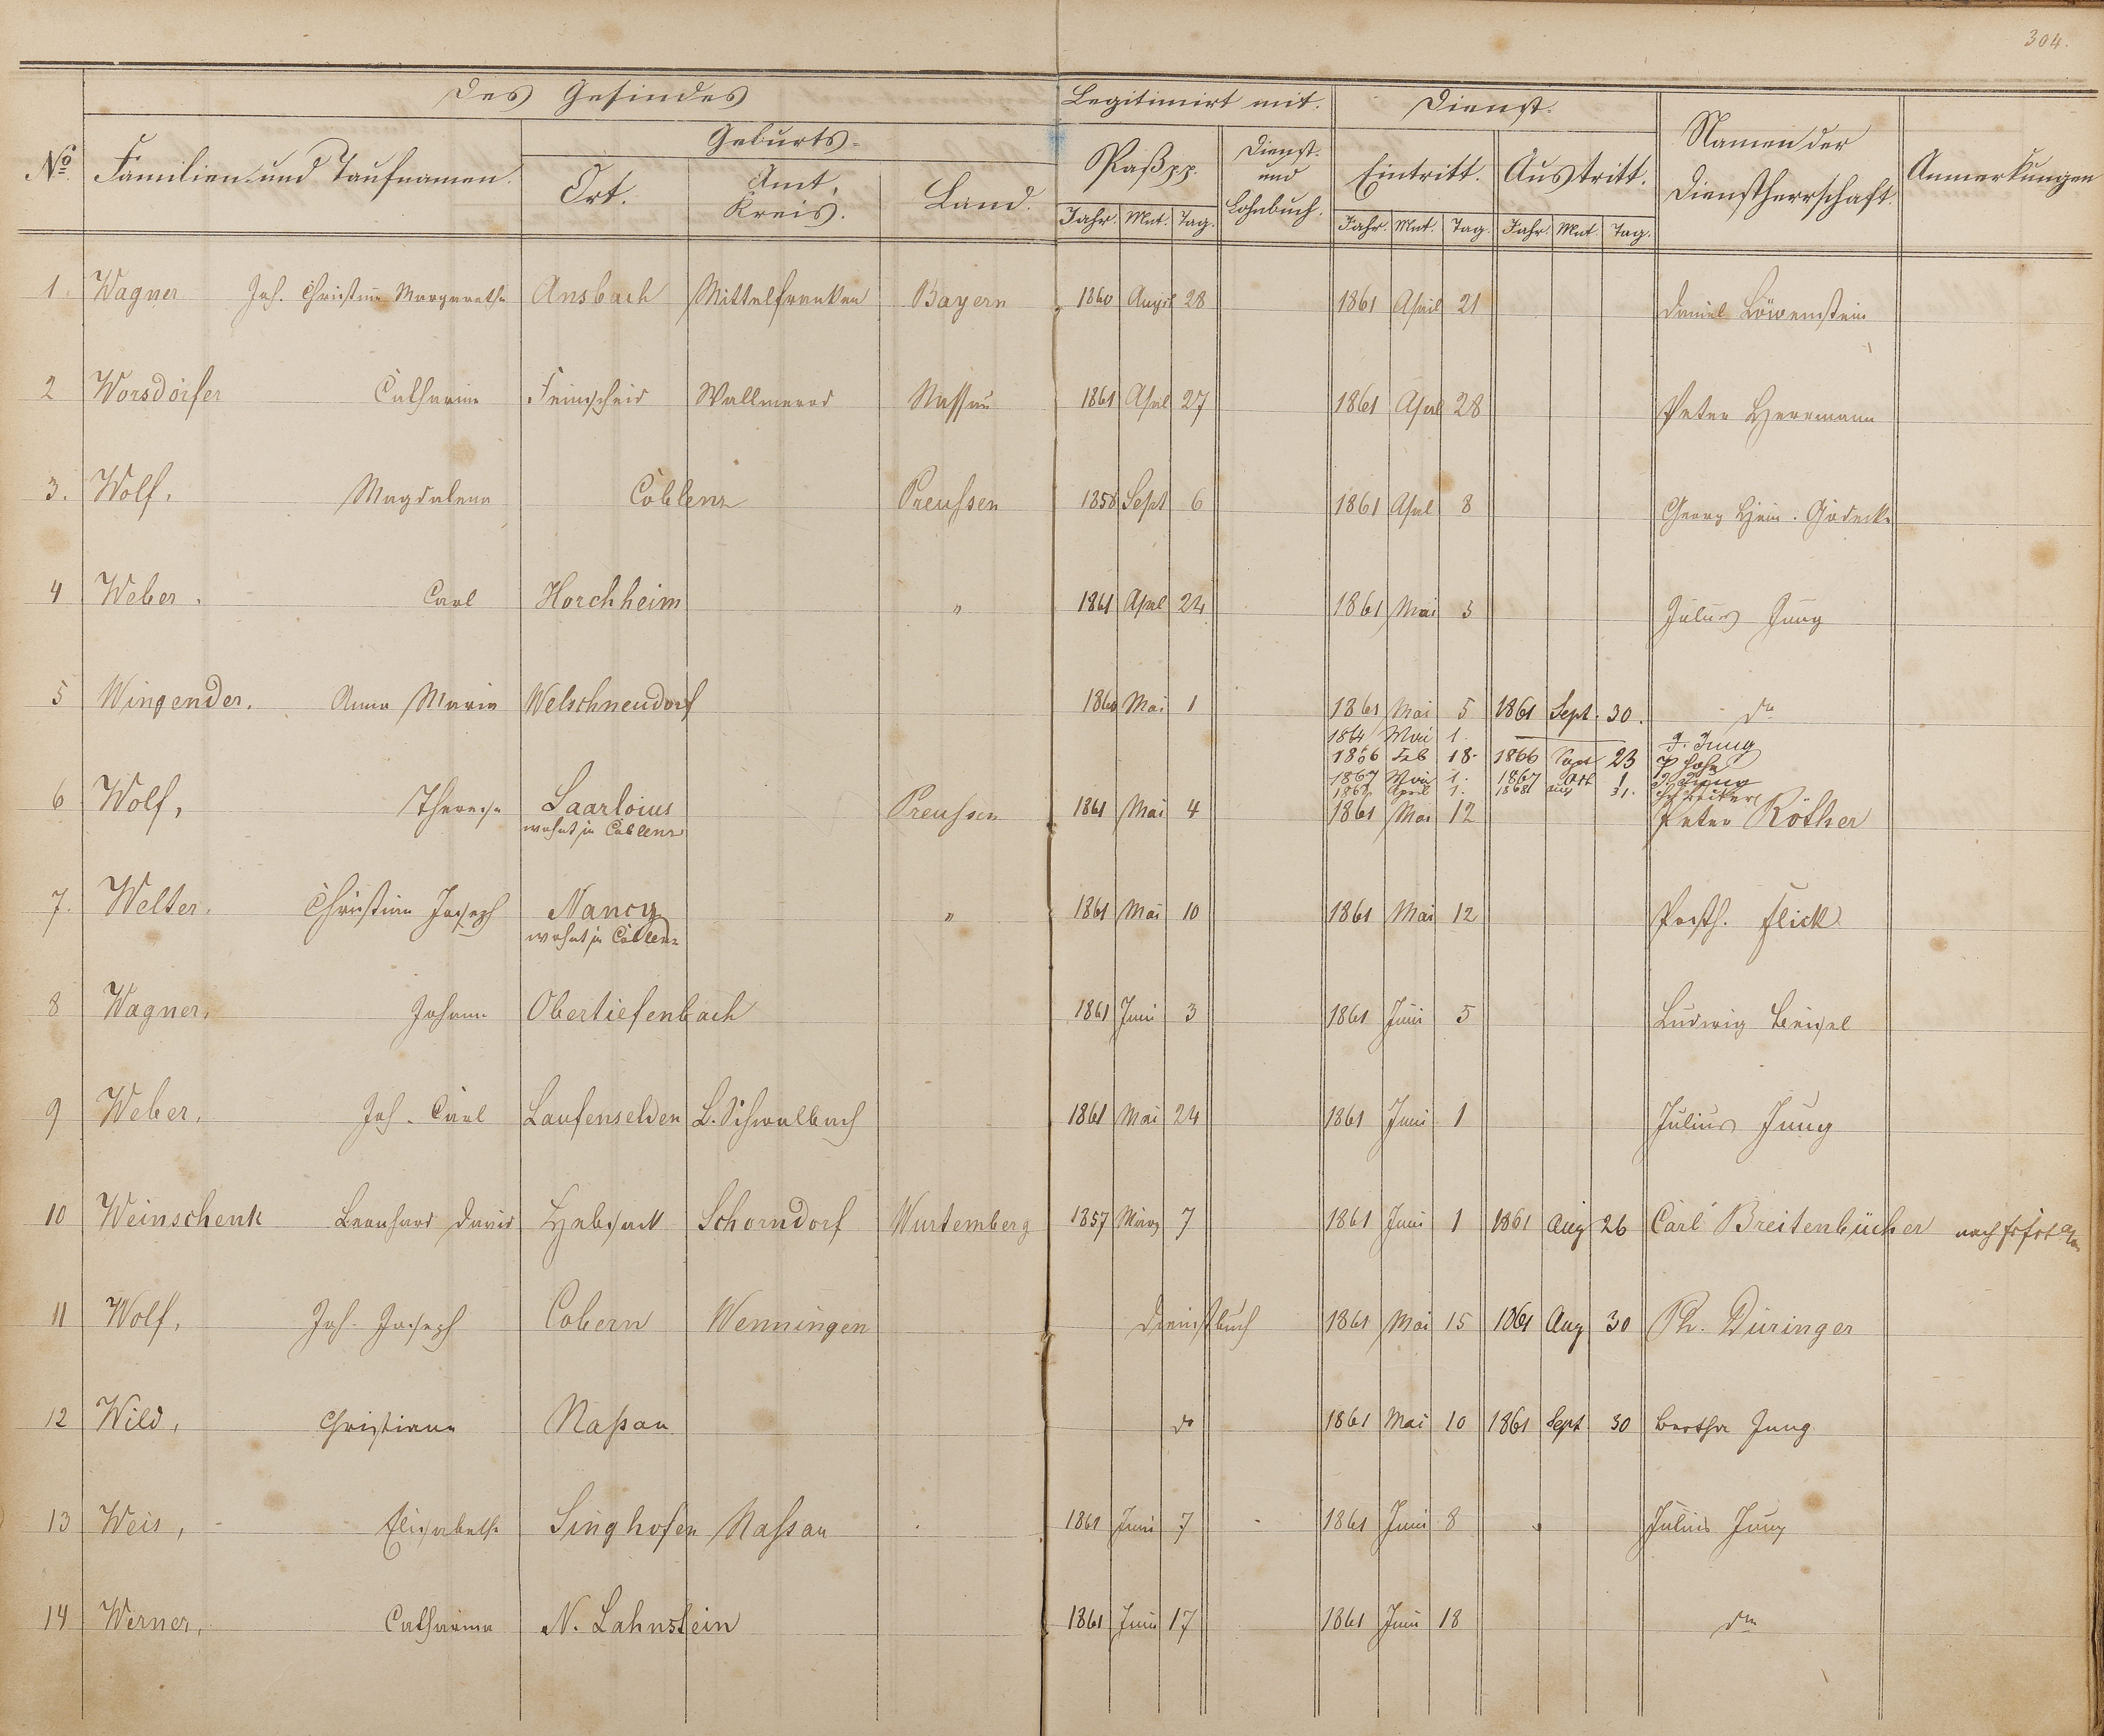 304.
Des Gesindes Legitimirt mit. Dienst.
No Familien- und Taufnamen. Geburts- Paß pp. Dienst- und Lohnbuch. Eintritt. Austritt. Namen der Dienstherrschaft. Anmerkungen
Ort. Amt, Kreis. Land.
Jahr. Mnt. Tag. Jahr. Mnt. Tag. Jahr. Mnt. Tag.
1 Wagner Joh. Christine Margarethe Ansbach Mittelfranken Bayern 1860 August 28 1861 April 21 Daniel Löwenstein
2 Worsdörfer Catharina Wallmerod Nassau 1861 April 27 1861 April 28 Peter Herrmann
3. Wolf, Magdalena Coblenz Preussen 1858 Sept 6 1861 April 8 Georg Hein. Gödecke
4 Weber, Carl Horchheim " 1861 April 24 1861 Mai 3 Julius Jung
5 Wingender, Anna Maria Welschneudorf 1860 Mai 1 1861 Mai 5 1861 Sept. 30. do
1864 Mai 1. J. Jung
1866 Feb 18. 1866 Sept 23
1867 Mai 1. 1867 Oct 1. J. Jung
1868 April 1. 1868 Aug 31.
6 Wolf, Therese Saarlouis Preussen 1861 Mai 4 1861 Mai 12 Peter Röther
wohnt in Coblenz
7. Welter, Christian Joseph Nancy " 1861 Mai 10 1861 Mai 12 Posth. Flick
wohnt in Coblenz
8 Wagner, Johann Obertiefenbach 1861 Juni 3 1861 Juni 5 Ludwig Beisel
9 Weber, Joh. Carl Laufenselden L. Schwalbach 1861 Mai 24 1861 Juni 1 Julius Jung
10 Weinschenk Leonhard David Hebsack Schorndorf Wurtemberg 1857 März 7 1861 Juni 1 1861 Aug 26 Carl Breitenbücher nach Frfrt a/m
11 Wolf, Joh. Joseph Cobern Wenningen Dienstbuch 1861 Mai 15 1861 Aug 30 Ph. Düringer
12 Wild, Christiane Naßau do 1861 Mai 10 1861 Sept 30 Bertha Jung
13 Weis, Elisabethe Singhofen Naßau 1861 Juni 7 1861 Juni 8 Julius Jung
14 Werner, Catharina N. Lahnstein 1861 Juni 17 1861 Juni 18 do